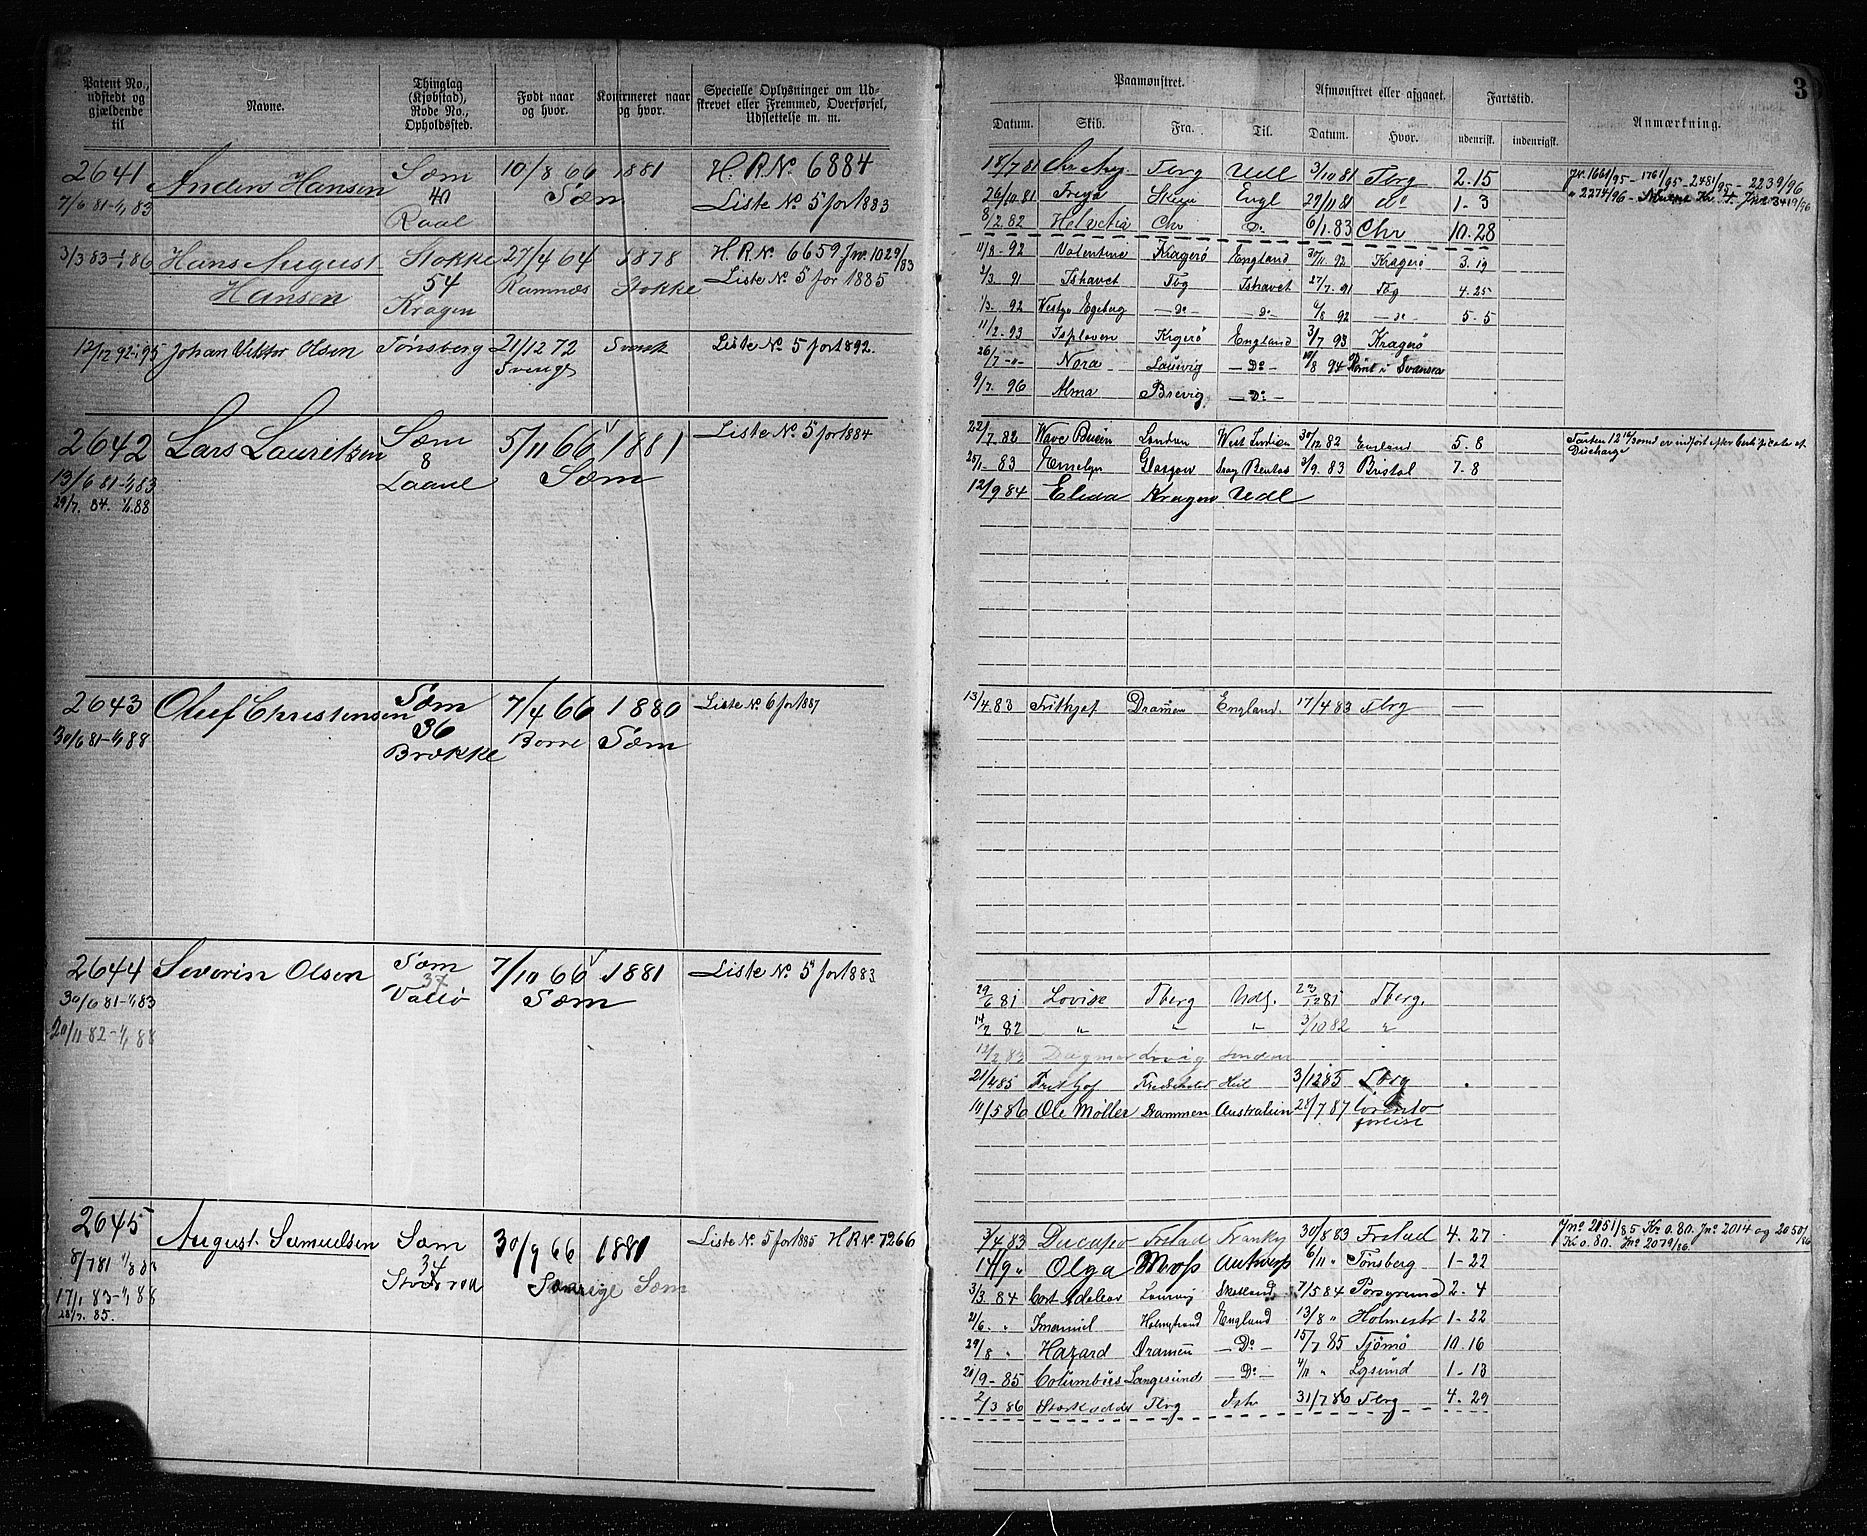 3
Patent No., udstedt og gjældende til
Navne.
Thinglag (Kjøbstad), Rode No., Opholdssted.
Født naar og hvor.
Konfirmeret naar og hvor.
Specielle Oplysninger om Udskrevet eller Fremmed, Overførsel, Udslettelse m. m.
Paamønstret.
Afmønstret eller afgaaet.
Fartstid.
Anmærkning.
Datum. Skib. Fra. Til. Datum. Hvor. udenrisk. indenrigsk.
2641 Anders Hansen Sæm 10/8 66 1881 H.R.No. 6884
7/6 81-1/1 83 40 Sæm Liste No. 5 for 1883
Raal
3/3 83-1/1 86 Hans August Stokke 27/4 64 1878 H.R.No. 6659 Jnr. 1029/83
Hansen 54 Ramnæs Stokke Liste No. 5 for 1885
Kragen
12/12 92-1/1 95 Johan Viktor Olsen Tønsberg 21/12 72 Svensk Liste No. 5 for 1892.
Sverige
18/7 81 Tbrg Udl 3/10 81 Tbrg 2.15
26/10 81 Freya Skien Engl 29/11 81 do 1-3
8/2 82 Helvetia Chr Do 6/1 83 Chr 10.28
11/8-92 Valentine Kragerø England 30/11 92 Kragerø 3.19
2/3 91 Ishavet Tbg Ishavet 27/7 91 Tbg 4.25
1/3 92 -do- -do- 6/8 92 -do- 5.5
11/2-93 Kragerø England 3/7 93 Kragerø
26/7 -"- Nora Laurvig -Do- 18/8 94 Rømt i Svansea
9/7 96 Alma Brevig -Do-
2642 Lars Lauritzen Sæm 5/11 66 1881 Liste No. 5 for 1884
13/6 81-1/1 83 8 Sæm
29/7. 84. 1/1.88
22/7 82 Wave Queen London West Indien 30/12 82 England 5.8
25/1-83 Emelyn Glasgow 3/9 83 Bristol 7-8
12/9 84 Elida Kragerø Udl
Discharge
2643 Oluf Christensen Sæm 7/4 66 1880 Liste No. 6 for 1887
30/6 81-1/1 88 36 Borre Sæm
Brække
13/4 83 Frithjof Drammen England. 17/4 83 Tbrg —
2644 Severin Olsen Sæm 7/10 66 1881 Liste No. 5 for 1883
30/6 81-1/1 83 37 Sæm
20/11 82-1/1 88 Vallø
29/6 81 Lovise Tberg Udl. 23/12 81 Tberg.
14/2 82 " " " 3/10 82 "
12/2 83 Dagmar Lvig London
21/4 85 Frithjof Fredrikshald Hul 3/12 85 Tbrg
10/5 86 Ole Møller Drammen Australien 28/7 87 Sørento
forlist
2645 August Samuelsen Sæm 30/9 66 1881 Liste No. 5 for 1885 H.R.No. 7266
8/7 81 1/1 83 34 Sverige Sæm
17/1 83-1/1 88
28/7. 85.
3/4 83 Frstad 30/8 83 Frstad 4.27 Jno 2151/85 Kr o.80. Jno 2014 og 2050/86
14/9 " Olga Moss Antverps 6/11 " Tønsberg 1-22 Kr o.80 Jno 2079/86.
3/3 84 Cort Adelaer Laurvig Skotland 7/5 84 Porsgrund 2-4
21/6 " Imanuel Holmstrand England 13/8 " Holmestr 1-22
29/8 " Hazard Dramen -Do- 15/7 85 Tjømø 10.16
20/9-85 Columbus Langesund -Do- 4/11 " Lgsund 1-13
2/3 86 Starkodder Tbrg Ish 31/7 86 Tbrg 4.29